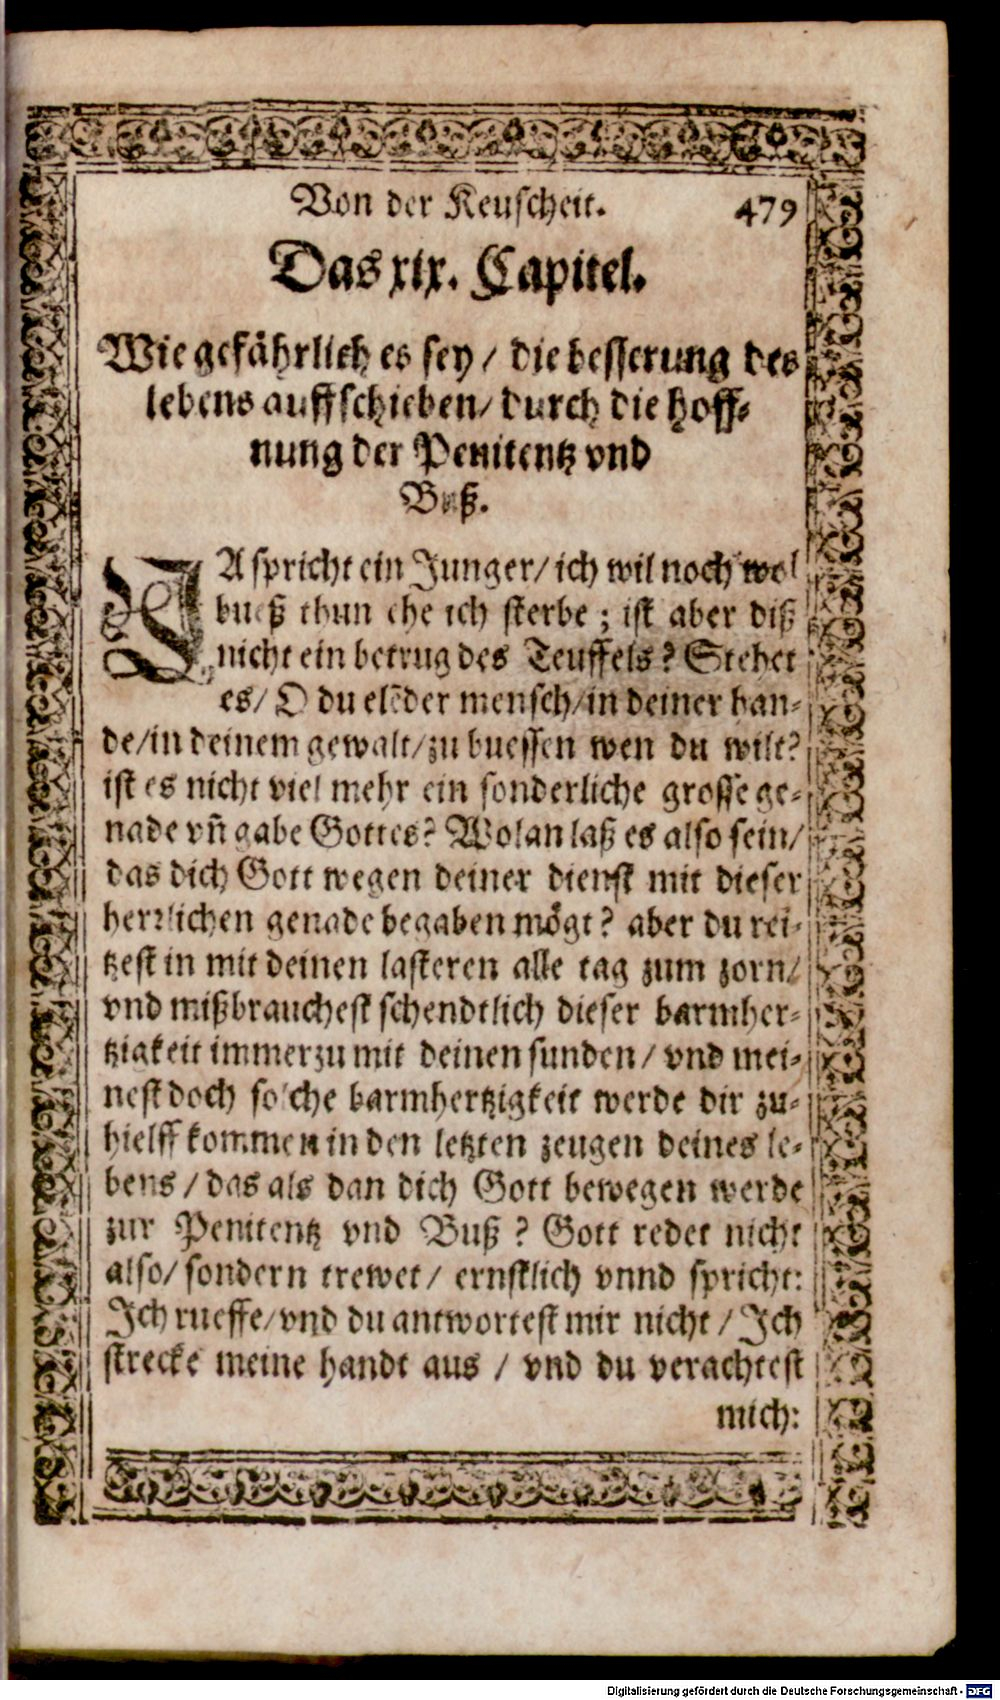 Von der Keuscheit. 479
Das xix. Capitel.
Wie gefährlich es sey / die besserung des
lebens auffschieben / durch die hoff-
nung der Penitentz vnd
Buß.
JA spricht ein Junger / ich wil noch wol
bueß thun ehe ich sterbe ; ist aber diß
nicht ein betrug des Teuffels? Stehet
es / O du elēder mensch / in deiner han-
de / in deinem gewalt / zu buessen wen du wilt?
ist es nicht viel mehr ein sonderliche grosse ge-
nade vñ gabe Gottes? Wolan laß es also sein /
das dich Gott wegen deiner dienst mit dieser
herrlichen genade begaben mögt? aber du rei-
tzest in mit deinen lasteren alle tag zum zorn /
vnd mißbrauchest schendtlich dieser barmher-
tzigkeit immerzu mit deinen sunden / vnd mei-
nest doch solche barmhertzigkeit werde dir zu-
hielff kommen in den letzten zeugen deines le-
bens / das als dan dich Gott bewegen werde
zur Penitentz vnd Buß ? Gott redet nicht
also / sondern trewet / ernstlich vnnd spricht:
Ich rueffe / vnd du antwortest mir nicht / Ich
strecke meine handt aus / vnd du verachtest
mich:
Digitalisierung gefördert durch die Deutsche Forschungsgemeinschaft - DFG